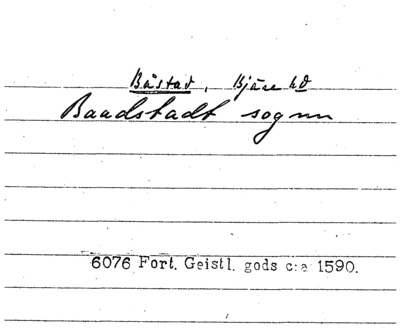 Båstad, Bjäre hd
Baadstadt sognn
6076 Fort. Geistl. gods c:a 1590.